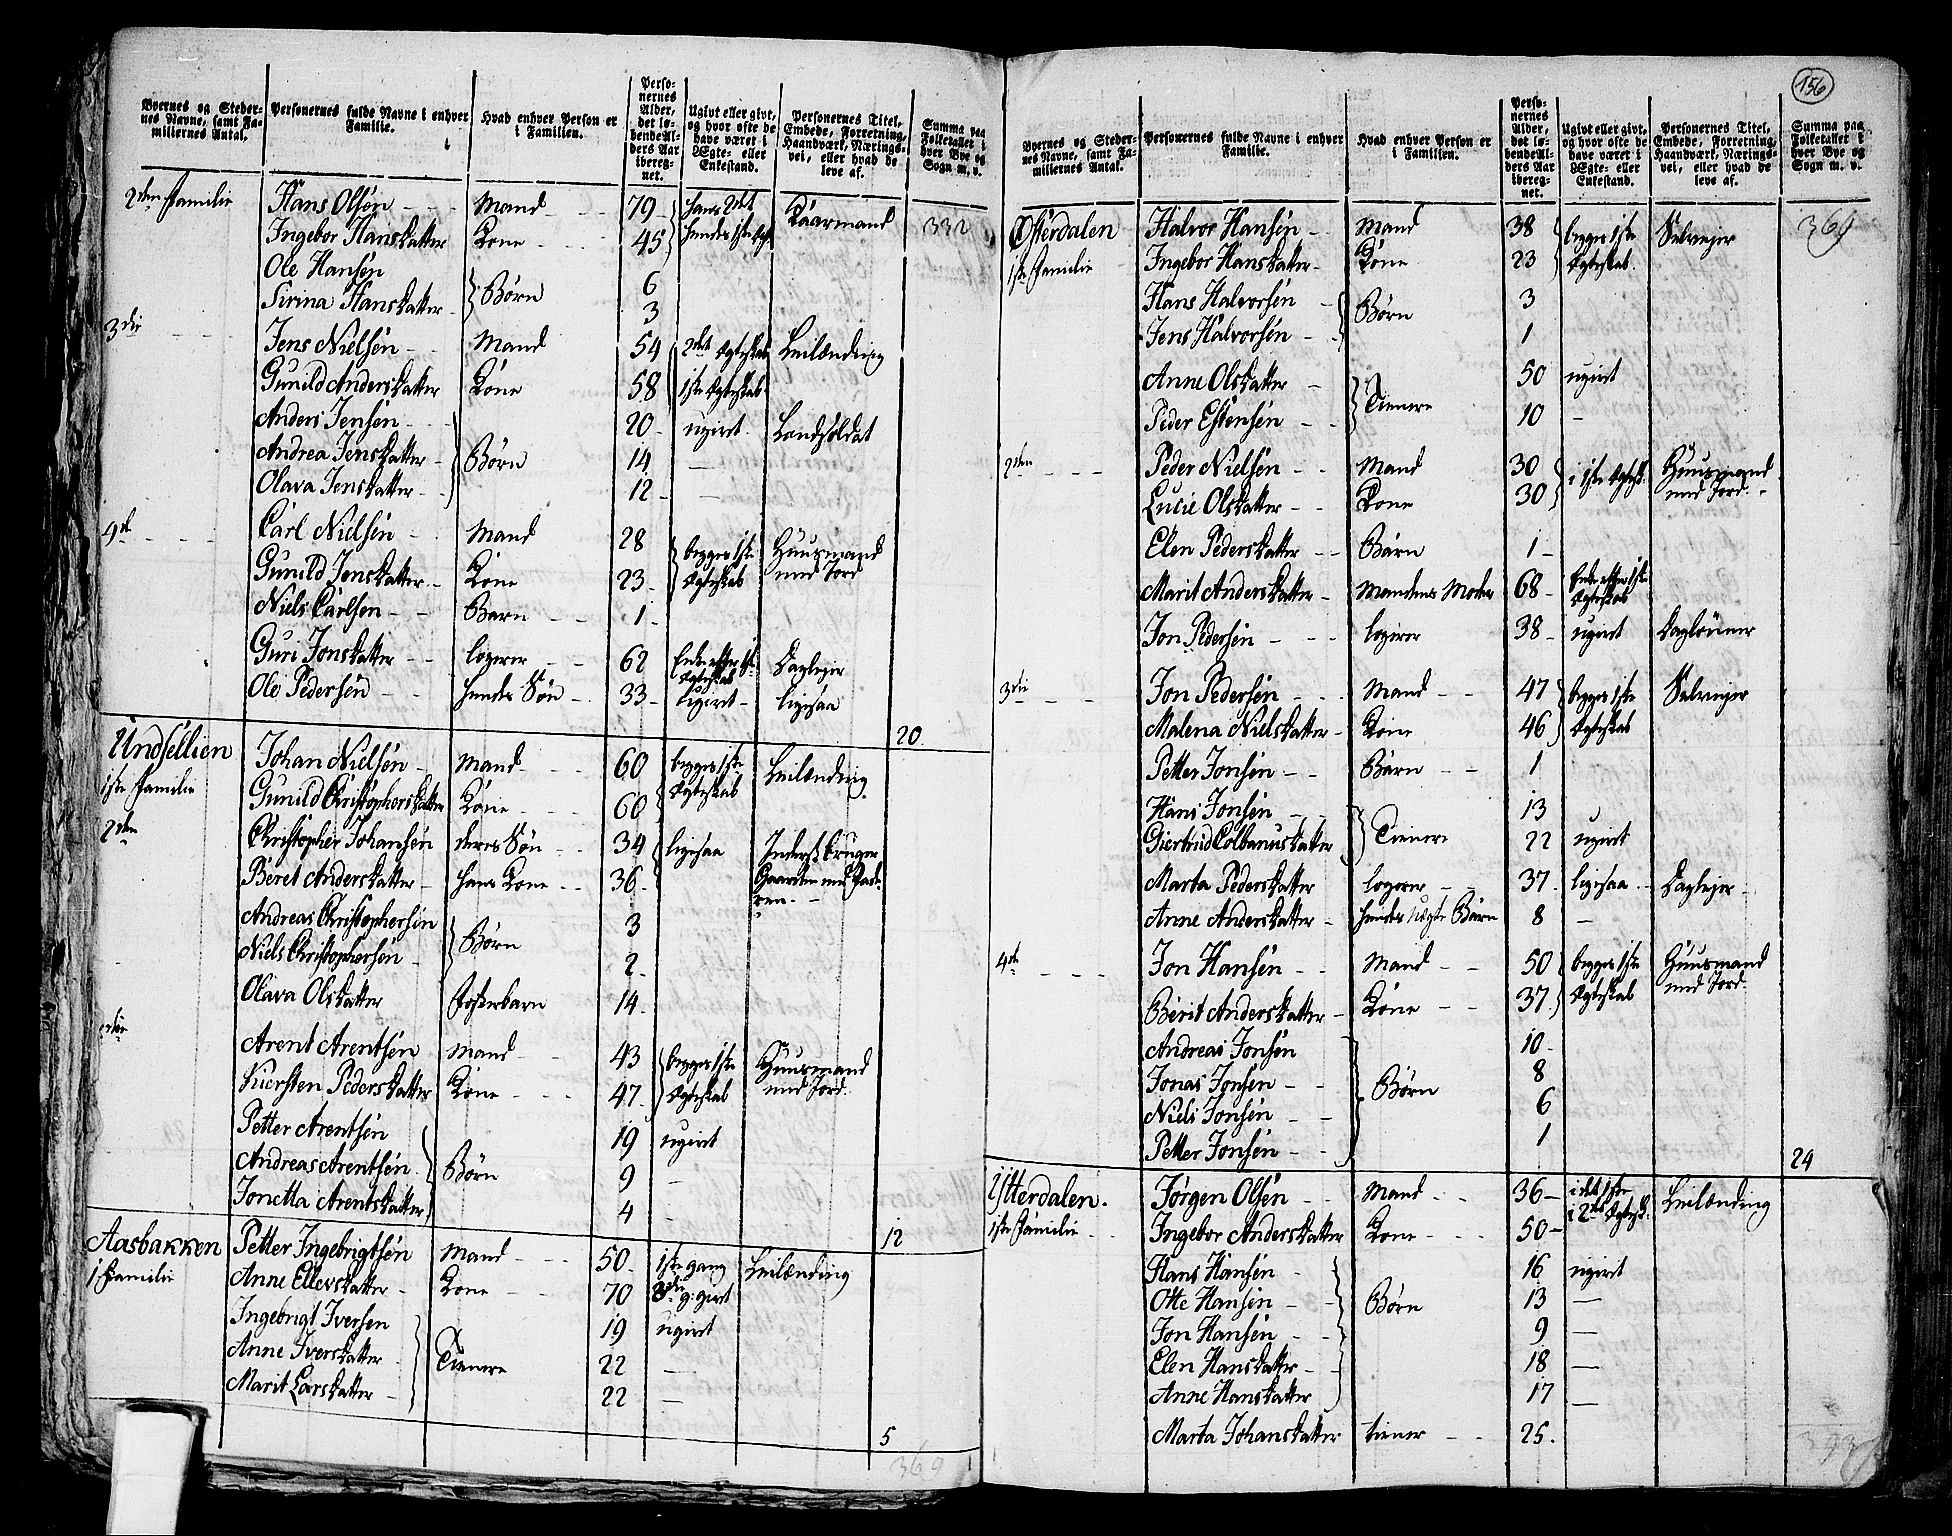 Byernes og Steder-
nes Navne, samt Fa-
miliernes Antal.
Personernes fulde Navne i enhver
Familie.
Hvad enhver Person er
i Familien.
Perso-
nernes
Alder,
det lø-
bende Al-
ders Aar
ibereg-
net.
Ugivt eller givt,
og hvor ofte de
have været i
Ægte- eller
Enkestand.
Personernes Titel,
Embede, Forretning,
Haandværk, Nærings-
vei, eller hvad de
leve af.
Summa paa
Folketallet i
hver Bye og
Sogn m. v.
2den Familie Hans Olsøn Mand 79 hans 2det Kaarmand 332
Ingebor Hansdatter Kone 45 hendes 1ste
Ole Hansøn Børn 6
Sirina Hansdatter 3
3die Jens Nielsøn Mand 54 2det Egteskab Leilænding
Gunild Andersdatter Kone 58 1ste Egteskab
Anders Jensøn Børn 20 ugivt Landsoldat
Andrea Jensdatter 14 —
Olava Jensdatter 12 —
4de Carl Nielsøn Mand 28 begge 1ste Huusmand
Gunild Jensdatter Kone 23 Egteskab med Jord
Niels Carlsen Barn 1
Guri Jonsdatter logerer 62 Enke efter 1ste Egteskab Daglejer
Ole Pedersøn hendes Søn 33 ugivt ligesaa
20
Undsetlien Johan Nielsøn Mand 60 begge 1ste Leilænding
1ste Familie Gunild Christophersdatter Kone 60 Egteskab
2den Christopher Johansøn deres Søn 34 ligesaa Inderst bruger
Beret Andersdatter hans Kone 36 Gaarden med Fade-
ren
Andreas Christophersøn Børn 3
Niels Christophersøn 2
Olava Olsdatter Fosterbarn 14
Arent Arentsøn Mand 43 begge 1ste Huusmand
Kiersten Pedersdatter Kone 47 Egteskab med Jord
Petter Arentsøn Børn 19 ugivt
Andreas Arentsøn 9 —
Jonetta Arentsdatter 4 —
12
Aasbakken Petter Ingebrigtsøn Mand 50 1ste gang Leilænding
1 Familie Anne Ellevsdatter Kone 70 3die g: givt
Ingebrigt Iversen Tienere 19 ugivt
Anne Iversdatter 22 —
Marit Larsdatter 22 —
5
369
156
Byernes og Steder-
nes Navne, samt Fa-
miliernes Antal.
Personernes fulde Navne i enhver
Familie.
Hvad enhver Person er
i Familien.
Perso-
nernes
Alder,
det lø-
bende Al-
ders Aar
ibereg-
net.
Ugivt eller givt,
og hvor ofte de
have været i
Ægte- eller
Enkestand.
Personernes Titel,
Embede, Forretning,
Haandværk, Nærings-
vei, eller hvad de
leve af.
Summa paa
Folketallet i
hver Bye og
Sogn m. v.
Østerdalen Halvor Hansøn Mand 38 begge 1ste Selvejer 369
1ste Familie Ingebor Hansdatter Kone 23 Egteskab
Hans Halvorsøn Børn 3
Jens Halvorsøn 1
Anne Olsdatter Tienere 50 ugivt
Peder Estensøn 10 —
2den Peder Nielsøn Mand 30 i 1ste Egtesk. Huusmand
Lucie Olsdatter Kone 30 med Jord
Elen Pedersdatter Barn 1
Marit Andersdatter Mandens Moder 68 Enke efter 1ste Egteskab
Jon Pedersøn logerer 38 ugivt Daglønner
3die Jon Pedersøn Mand 47 begge 1ste Selvejer
Malena Nielsdatter Kone 46 Egteskab
Petter Jonsøn Barn 1
Hans Jonsøn Tienere 13
Giertrud Colbanusdatter 22 ugivt
Marta Pedersdatter logerer 37 ligesaa Daglejer
Anne Andersdatter hendes uægte Barn 8 —
4de Jon Hansøn Mand 50 begge 1ste Huusmand
Berit Andersdatter Kone 37 Egteskab med Jord
Andreas Jonsøn Børn 10
Jonas Jonsøn 8
Niels Jonsøn 6
Petter Jonsøn 1
24
Ytterdalen Jørgen Olsøn Mand 36 i det 1ste Leilænding
1ste Familie Ingebor Andersdatter Kone 50 i 2det Egtesk.
Hans Hansøn Børn 16 ugivt
Otte Hansøn 13 —
Jon Hansøn 9 —
Elen Hansdatter 18 —
Anne Hansdatter 17 —
Marta Johansdatter tiener 25
393